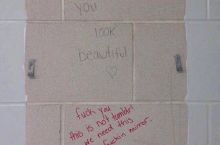 you
look
beautiful
fuck you
this is not tumblr
we need this
fuckin mirror.